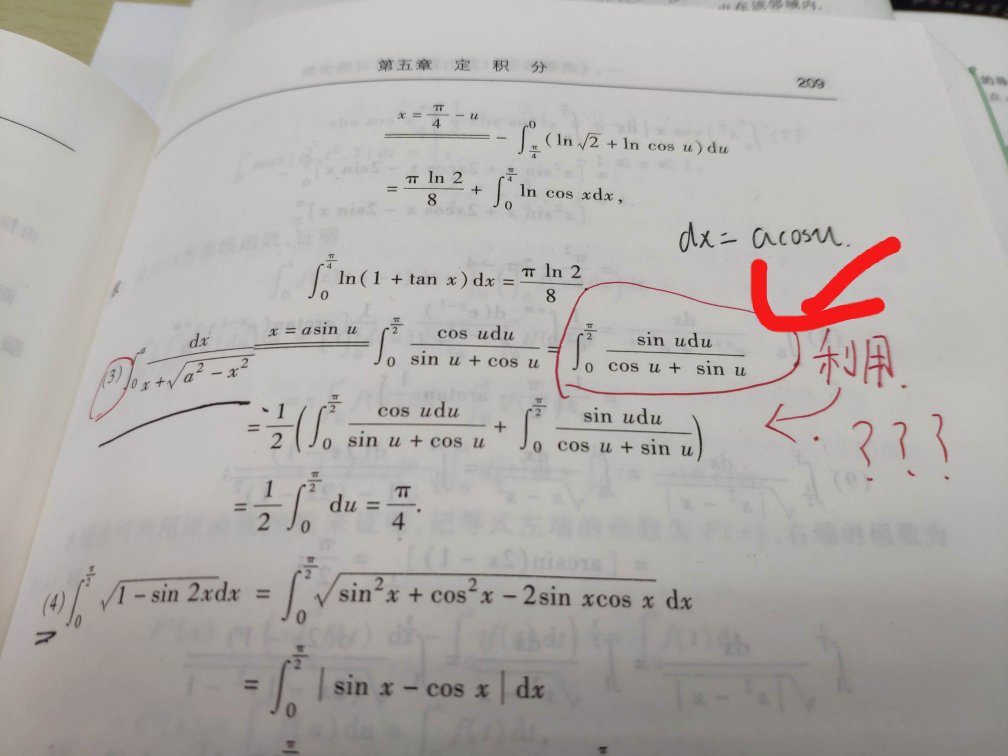 第五章 定 积 分
209
x = π/4 − u
− ∫_{π/4}^{0} (ln √2 + ln cos u) du
= π ln 2 / 8 + ∫_0^{π/4} ln cos xdx,
dx = acosu.
∫_0^{π/4} ln(1 + tan x) dx = π ln 2 / 8.
(3) ∫_0^a dx / (x + √(a² − x²)) x = asin u ∫_0^{π/2} cos udu / (sin u + cos u) = ∫_0^{π/2} sin udu / (cos u + sin u)
利用.
= 1/2 (∫_0^{π/2} cos udu / (sin u + cos u) + ∫_0^{π/2} sin udu / (cos u + sin u))
???
= 1/2 ∫_0^{π/2} du = π/4.
(4) ∫_0^{π/2} √(1 − sin 2x) dx = ∫_0^{π/2} √(sin²x + cos²x − 2sin xcos x) dx
= ∫_0^{π/2} | sin x − cos x | dx